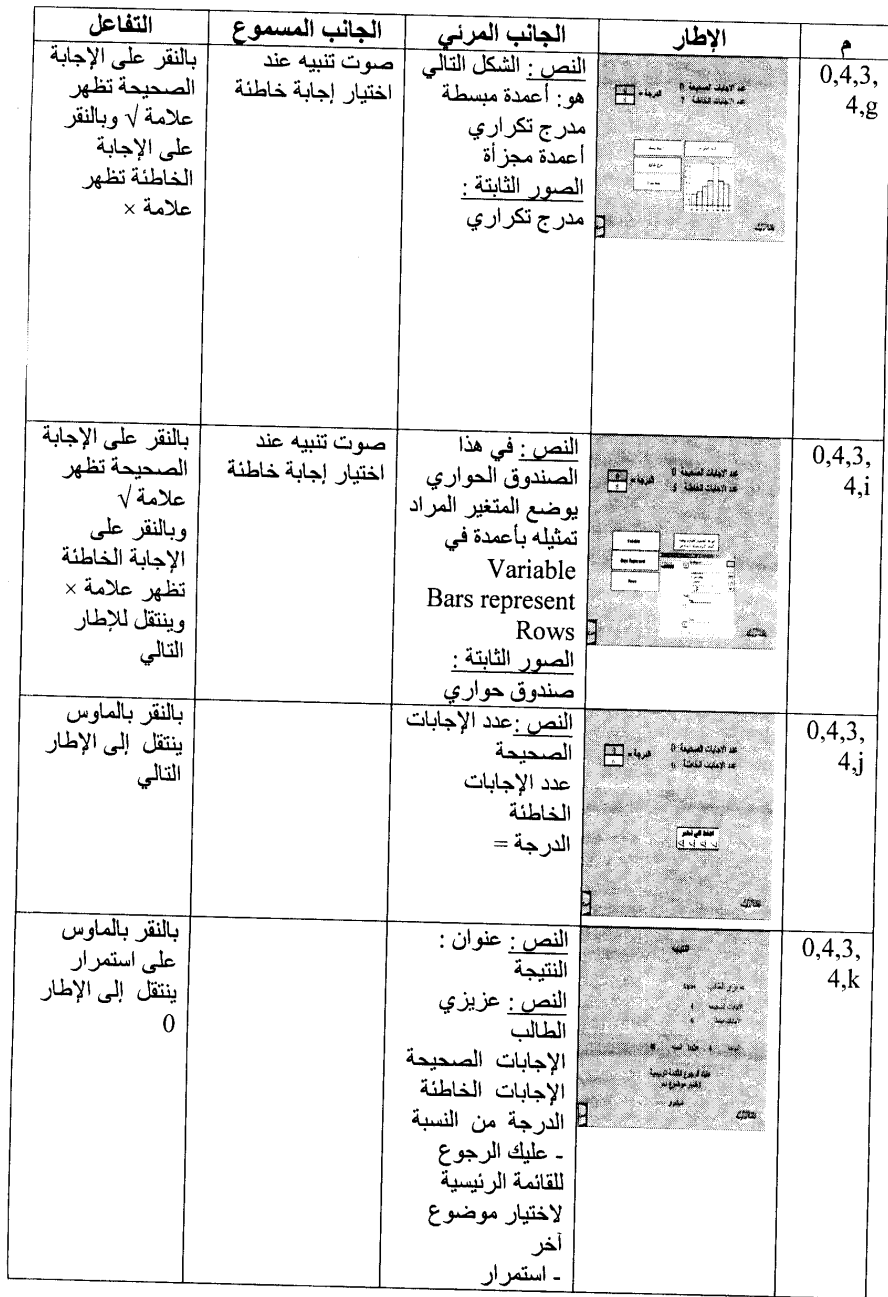 م
الإطار
الجانب المرئي
الجانب المسموع
التفاعل
0,4,3,
4,g
عدد الاجابات الصحيحة 0
عدد الاجابات الخاطئة
الدرجة =
النص : الشكل التالي
هو: أعمدة مبسطة
مدرج تكراري
أعمدة مجزأة
الصور الثابتة :
مدرج تكراري
صوت تنبيه عند
اختيار إجابة خاطئة
بالنقر على الإجابة
الصحيحة تظهر
علامة √ وبالنقر
على الإجابة
الخاطئة تظهر
علامة ×
0,4,3,
4,i
عدد الاجابات الصحيحة 0
عدد الاجابات الخاطئة
الدرجة =
Variable
Bars Represent
Rows
النص : في هذا
الصندوق الحواري
يوضع المتغير المراد
تمثيله بأعمدة في
Variable
Bars represent
Rows
الصور الثابتة :
صندوق حواري
صوت تنبيه عند
اختيار إجابة خاطئة
بالنقر على الإجابة
الصحيحة تظهر
علامة √
وبالنقر على
الإجابة الخاطئة
تظهر علامة ×
وينتقل للإطار
التالي
0,4,3,
4,j
عدد الاجابات الصحيحة 0
عدد الاجابات الخاطئة
الدرجة =
النص :عدد الإجابات
الصحيحة
عدد الإجابات
الخاطئة
الدرجة =
بالنقر بالماوس
ينتقل إلى الإطار
التالي
0,4,3,
4,k
النتيجة
عليك الرجوع للقائمة الرئيسية
استمرار
النص : عنوان :
النتيجة
النص : عزيزي
الطالب
الإجابات الصحيحة
الإجابات الخاطئة
الدرجة من النسبة
- عليك الرجوع
للقائمة الرئيسية
لاختيار موضوع
آخر
- استمرار
بالنقر بالماوس
على استمرار
ينتقل إلى الإطار
0